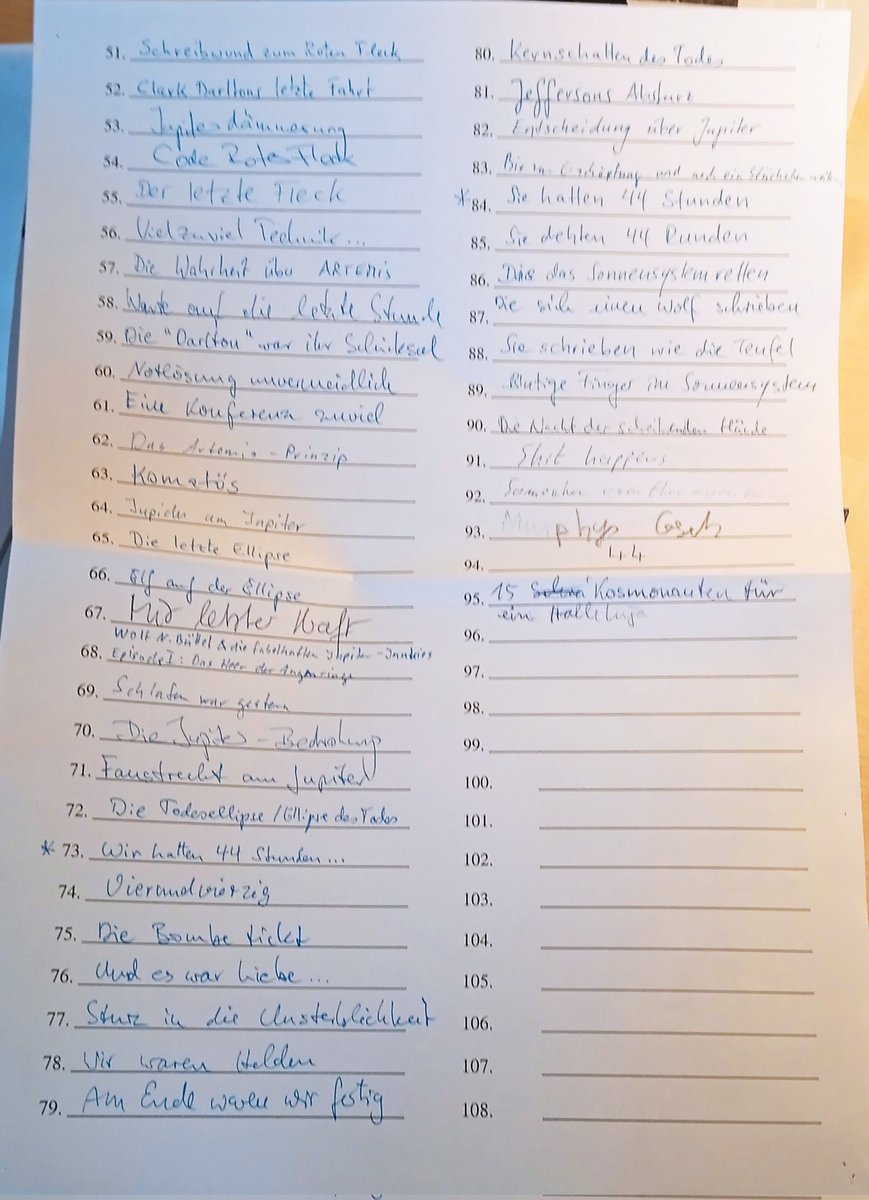 51. Schreibwund zum Roten Fleck
52. Clark Darltons letzte Fahrt
53. Jupiterdämmerung
54. Code Roter Fleck
55. Der letzte Fleck
56. Viel zuviel Technik...
57. Die Wahrheit über ARTEMIS
58. Warte auf die letzte Stunde
59. Die "Darlton" war ihr Schicksal
60. Notlösung unvermeidlich
61. Eine Konferenz zuviel
62. Das Artemis-Prinzip
63. Komatös
64. am Jupiter
65. Die letzte Ellipse
66. Elf auf der Ellipse
67. Mit letzter Kraft
68. Wolf N. Büttel & die fabelhaften Jupiter-Junkies
Episode I: Das Heer der Augenringe
69. Schlafen war gestern
70. Die Jupiter-Bedrohung
71. Faustrecht am Jupiter
72. Die Todesellipse / Ellipse des Todes
* 73. Wir hatten 44 Stunden...
74. Vierundvierzig
75. Die Bombe tickt
76. Und es war Liebe...
77. Sturz in die Unsterblichkeit
78. Wir waren Helden
79. Am Ende waren wir fertig
80. Kernschatten des Todes
81. Jeffersons Absturz
82. Entscheidung über Jupiter
83. Bis zur Erschöpfung und noch ein Stückchen weiter
* 84. Sie hatten 44 Stunden
85. Sie drehten 44 Runden
86. Die das Sonnensystem retten
87. Die sich einen Wolf schrieben
88. Sie schrieben wie die Teufel
89. Blutige Finger im Sonnensystem
90. Die Nacht der schreibenden Hände
91. Shit happens
92.
93. Murphys Gesetz
94. 44
95. 15 Kosmonauten für
ein Halleluja
96.
97.
98.
99.
100.
101.
102.
103.
104.
105.
106.
107.
108.